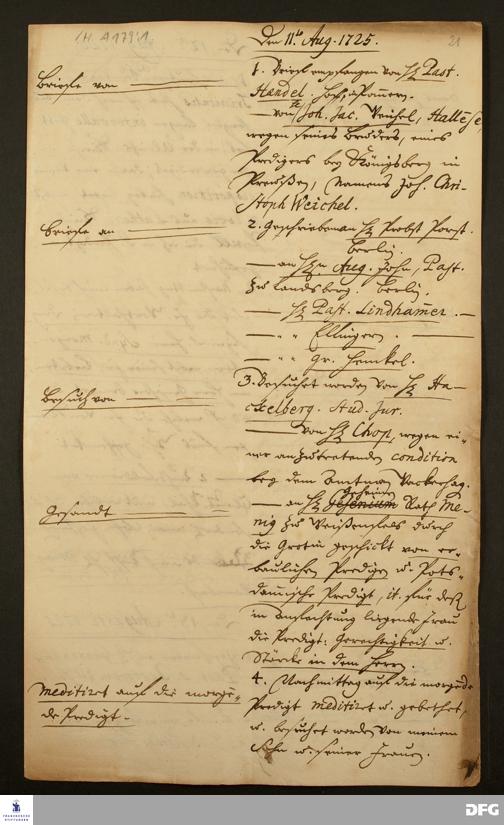 (H. A 179:1
21
Den 11t. Aug. 1725.
Briefe von
1. Brief empfangen von H. Past.
Handel
von Joh. Jac. Hallense,
wegen seines Bruders, eines
Predigers bey Königsberg in
Preußen, Namens Joh. Chri-
stoph Weichel.
Briefe an
2. Geschrieben an H. Probst Porst.
Berlin.
an H. Aug. John, Past.
zu Landsberg. Berlin.
H. Past. Lindhamer.
Ellinger.
Gr. Henkel.
Besuch von
3. Besuchet worden von H. Ha-
ckelberg. Stud. Jur.
von H. Chop, wegen ei-
ner anzutretenden condition
bey dem Amtman
Gesandt
an H. Geheim Rath Me-
nig zu Weißenfels durch
die geschickt von er-
baulichen Predigen u. Pots-
damische Predigt, it. für deß
in Anfechtung liegende Frau
die Predigt: Gerechtigkeit u.
Stärcke in dem Herrn.
Meditiret auf die morge-
de Predigt.
4. Nachmittag auf die morgende
Predigt meditiret u. gebethet,
u. besuchet worden von meinem
Sohn u. seiner Frauen.
FRANCKESCHE
STIFTUNGEN
DFG